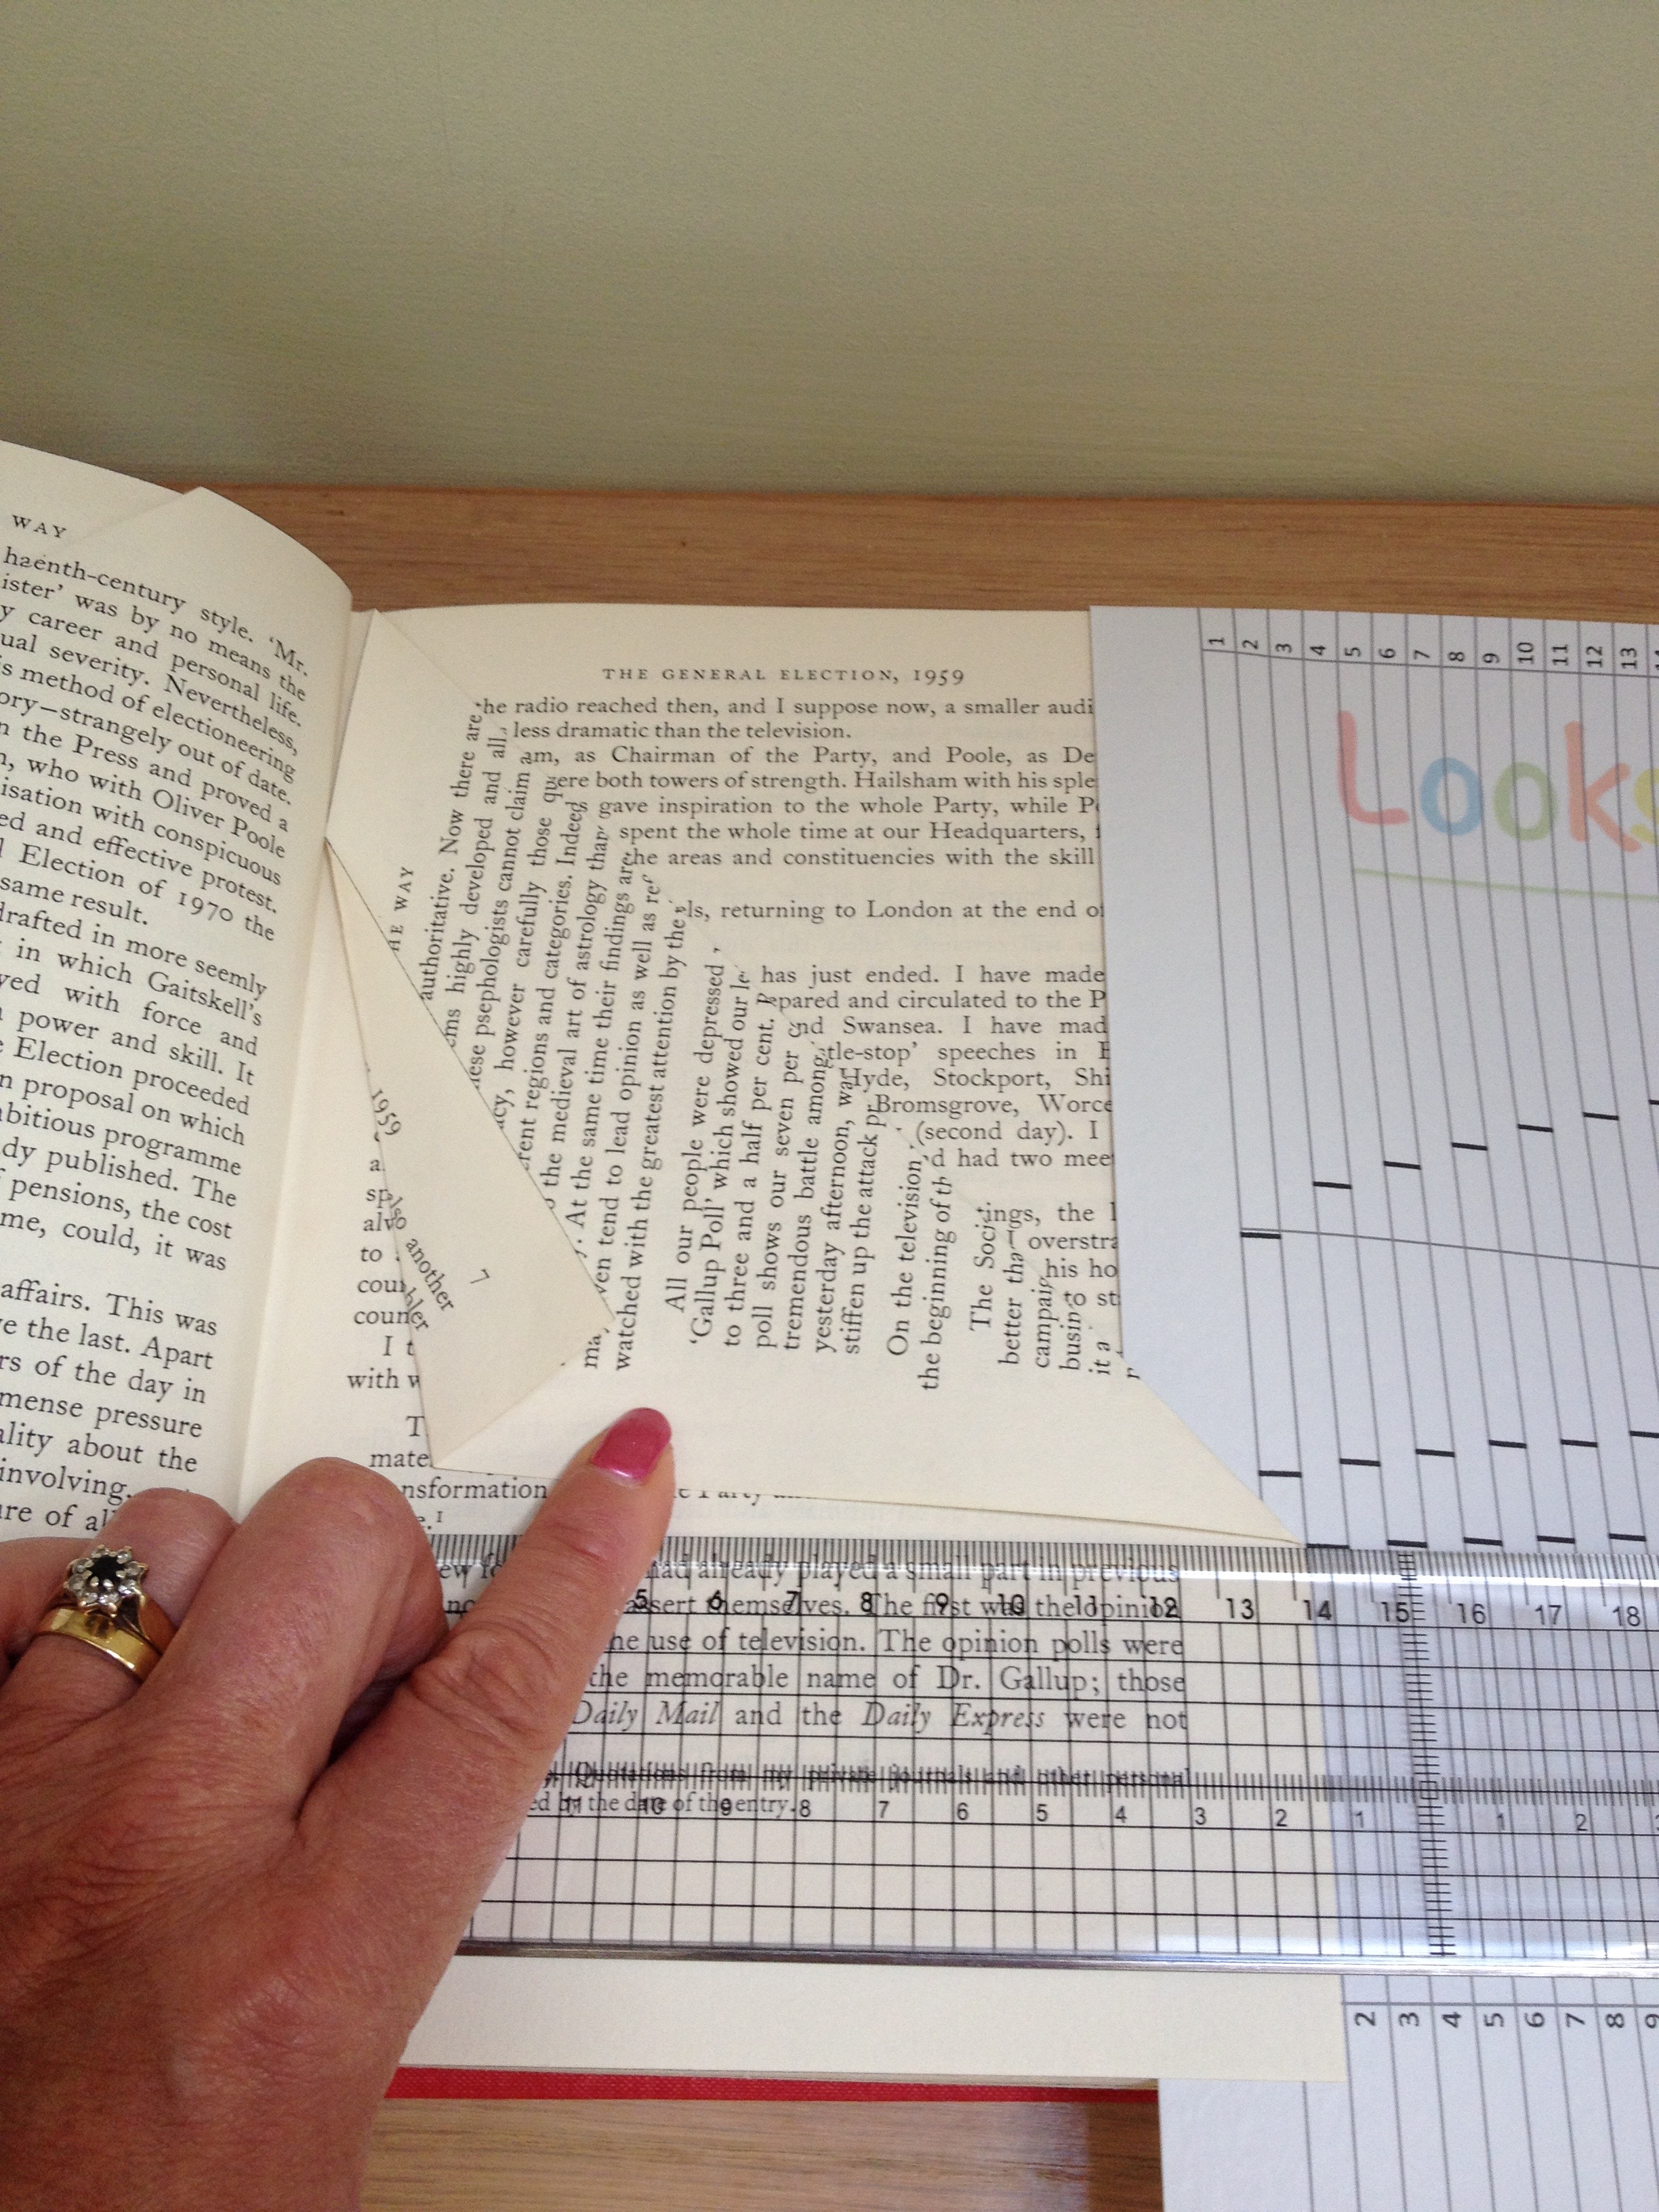 WAY
haenth-century style. 'Mr.
ister' was by no means the
y career and personal life.
ual severity. Nevertheless,
s method of electioneering
ory—strangely out of date.
n the Press and proved a
n, who with Oliver Poole
isation with conspicuous
ed and effective protest.
l Election of 1970 the
same result.
drafted in more seemly
in which Gaitskell's
yed with force and
power and skill. It
e Election proceeded
n proposal on which
nbitious programme
dy published. The
f pensions, the cost
me, could, it was
affairs. This was
ve the last. Apart
rs of the day in
mense pressure
ality about the
involving.
are of al
THE GENERAL ELECTION, 1959
he radio reached then, and I suppose now, a smaller audi
less dramatic than the television.
am, as Chairman of the Party, and Poole, as De
ere both towers of strength. Hailsham with his sple
gave inspiration to the whole Party, while P
spent the whole time at our Headquarters,
he areas and constituencies with the skill
ls, returning to London at the end of
has just ended. I have made
epared and circulated to the P
nd Swansea. I have mad
tle-stop' speeches in
Hyde, Stockport, Shi
Bromsgrove, Worce
(second day). I
d had two mee
tings, the
overstra
his ho
to st
HE WAY
authoritative. Now there are
ems highly developed and all
hese psephologists cannot claim
acy, however carefully those qu
erent regions and categories. Indeed
the medieval art of astrology than
y. At the same time their findings are
ma ven tend to lead opinion as well as ref
watched with the greatest attention by the
All our people were depressed
'Gallup Poll' which showed our le
to three and a half per cent.
poll shows our seven per
tremendous battle among
yesterday afternoon, wa
stiffen up the attack
On the television
the beginning of th
The Soci
better tha
campaig
busin
it a
1959
also another
bler
7
a
sp
alv
to
cou
coun
I t
with w
T
mate
nsformation
e Party
e.¹
ew fo had already played a small part in previous
assert themselves. The first was the opinion
he use of television. The opinion polls were
the memorable name of Dr. Gallup; those
Daily Mail and the Daily Express were not
Quotations from my private journals and other personal
ed by the date of the entry.
5 6 7 8 9 10 11 12 13 14 15 16 17 18
11 10 9 8 7 6 5 4 3 2 1 1 2
1 2 3 4 5 6 7 8 9 10 11 12 13
Looks
2 3 4 5 6 7 8 9